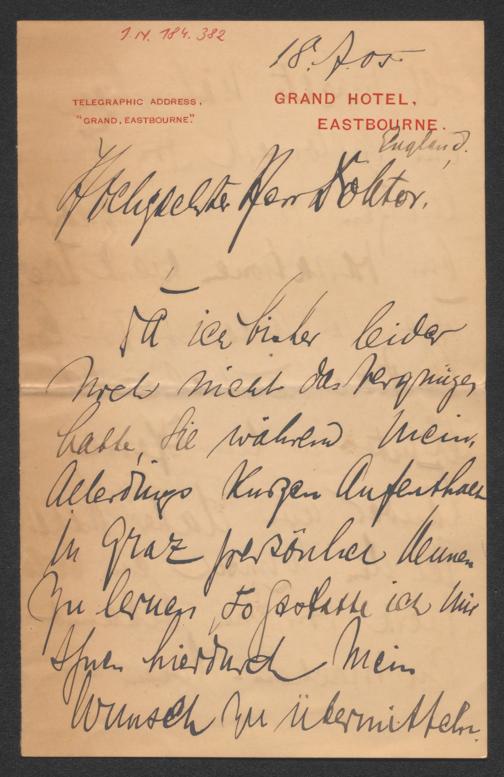 I.N. 184.382
18. 7. 05
TELEGRAPHIC ADDRESS,
"GRAND, EASTBOURNE."
GRAND HOTEL,
EASTBOURNE.
England.
Hochgeehrter Herr Doktor.
Da ich bisher leider
noch nicht das Vergnügen
hatte, Sie während mein.
Allerdings Kurzen Aufenthalt
in Graz persönlich kennen
zu lernen, so gestatte ich mir
Ihnen hierdurch mein
Wunsch zu übermitteln.